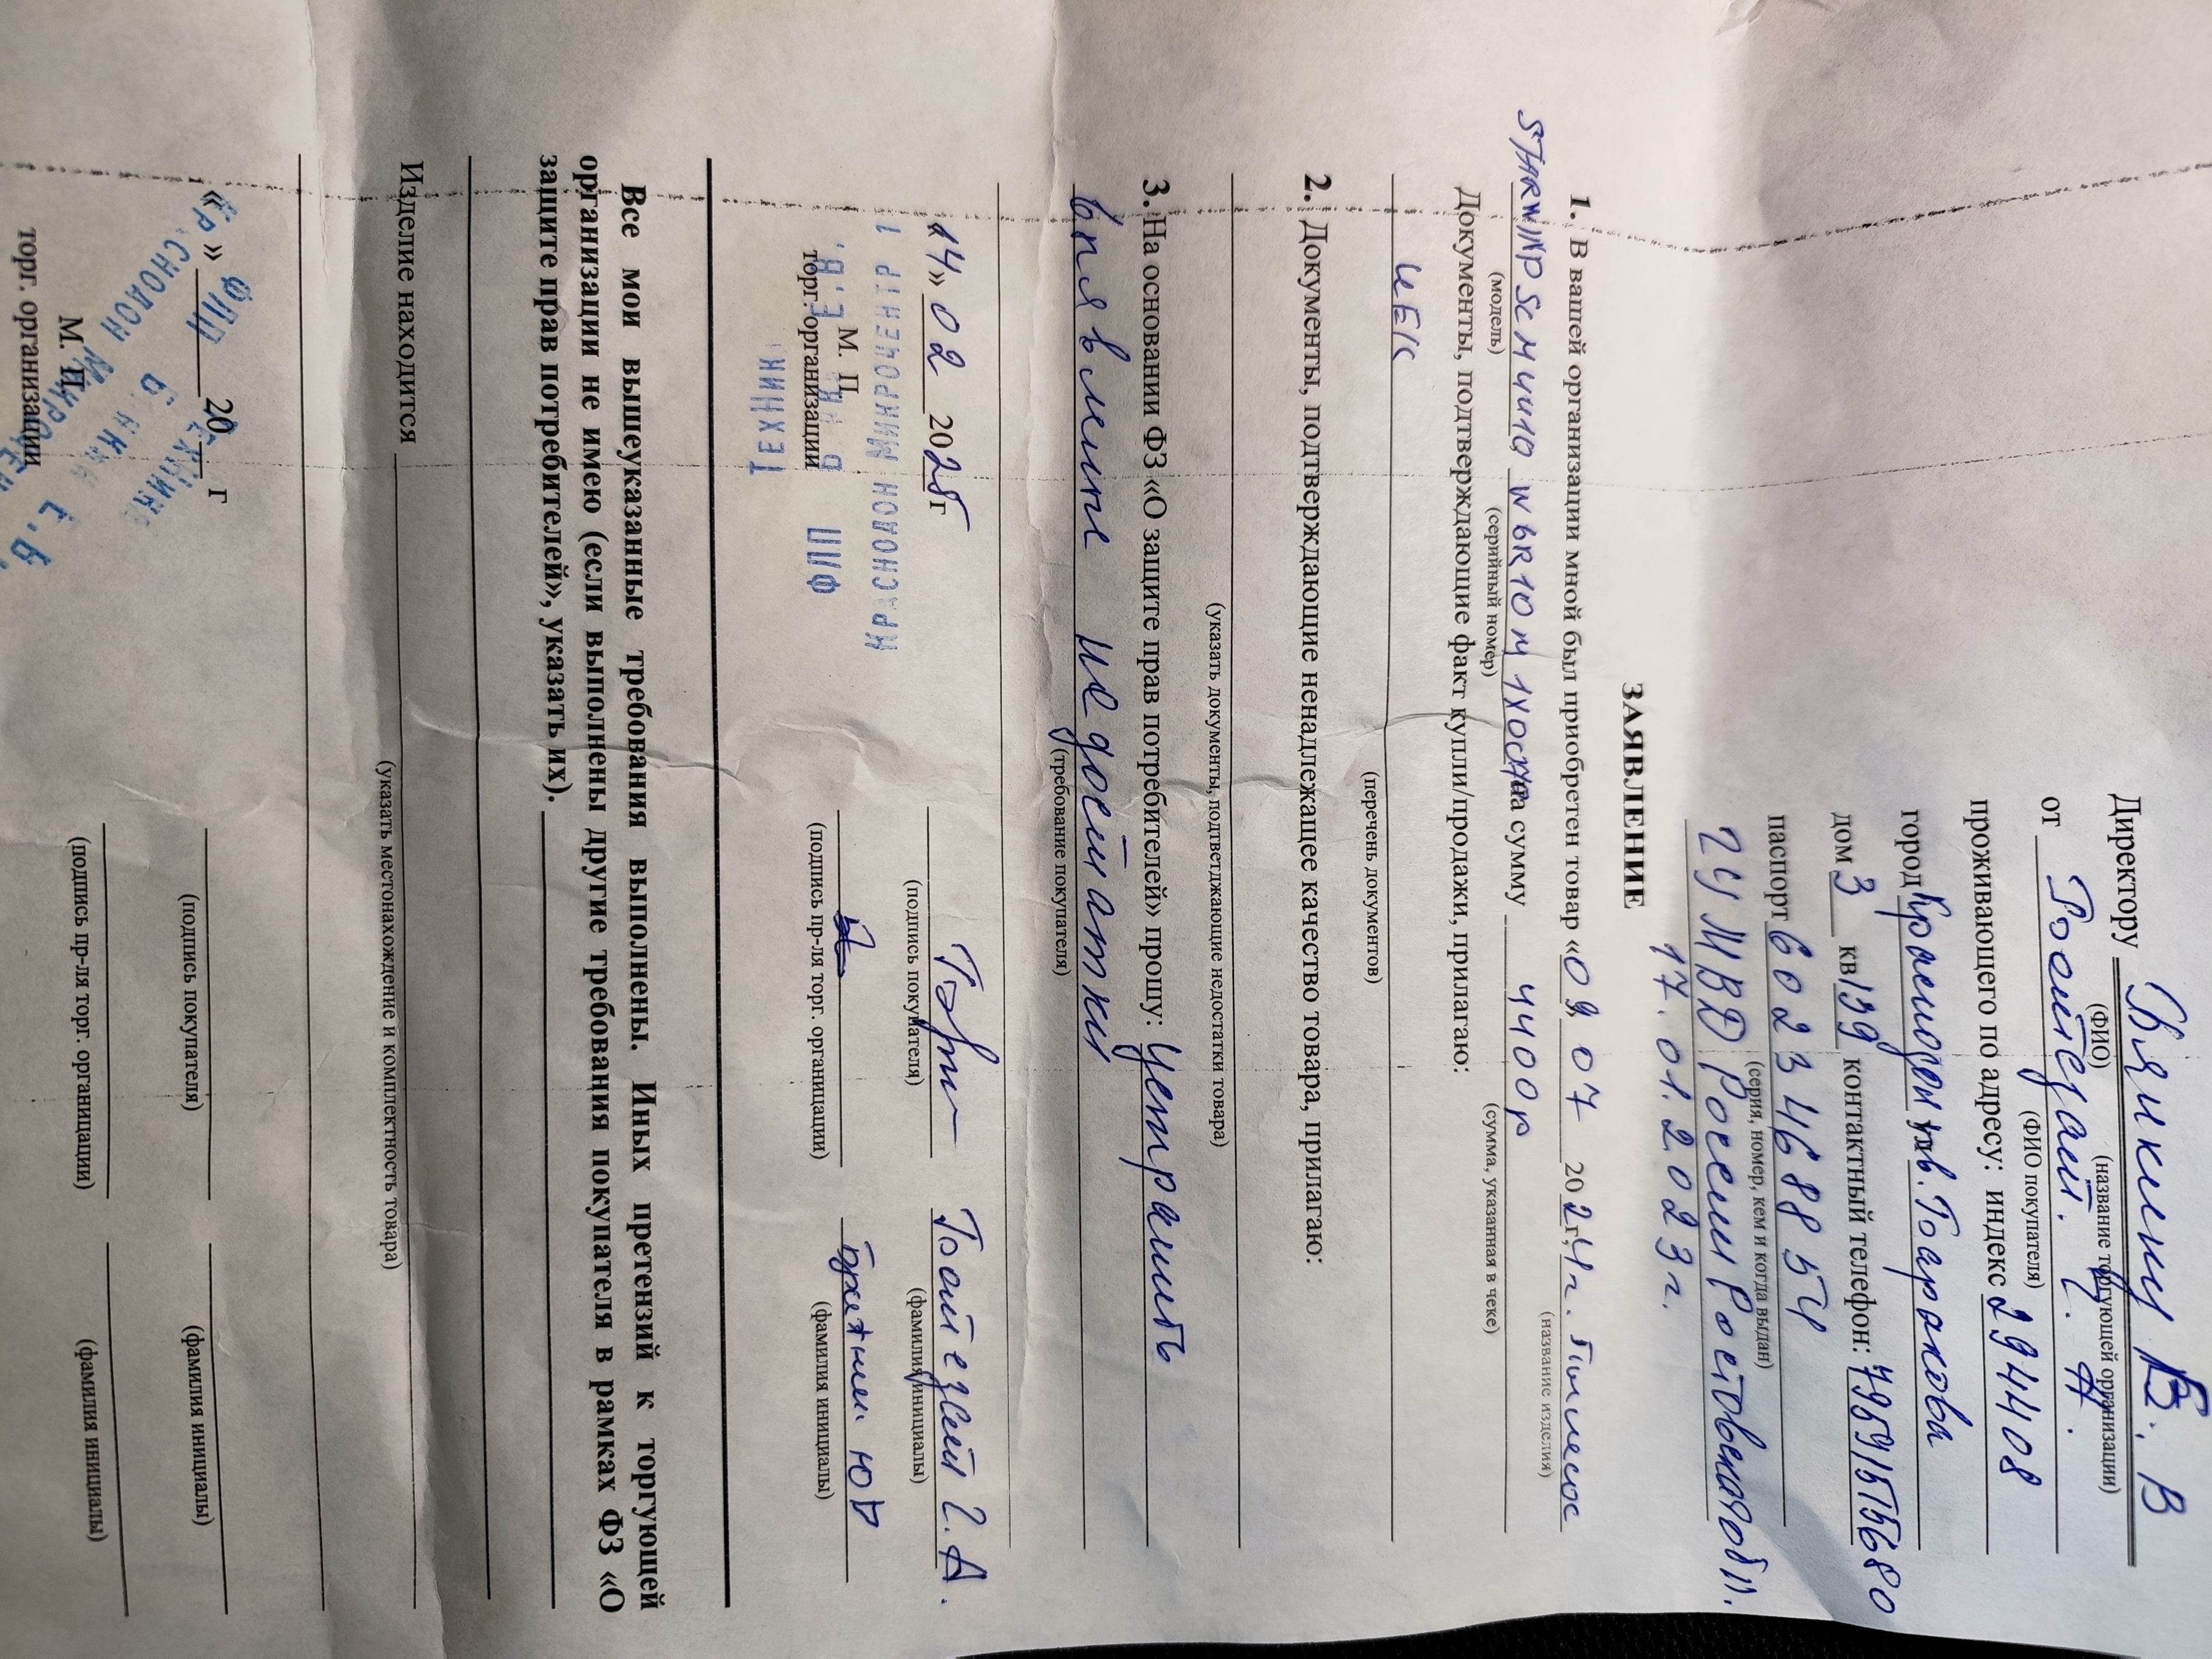 Директору Вялкину В. В
(ФИО) (название торгующей организации)
от
(ФИО покупателя)
проживающего по адресу: индекс 294408
город Краснодон
дом 3 кв 139 контактный телефон: 79591515680
паспорт 6023 468854
(серия, номер, кем и когда выдан)
ГУ МВД России Ростовской обл.
17.01.2023г.
ЗАЯВЛЕНИЕ
1. В вашей организации мной был приобретен товар «09 07 2024г. Пылесос
(название изделия)
STARWIND SCM4410 на сумму 4400р
(модель) (серийный номер) (сумма, указанная в чеке)
Документы, подтверждающие факт купли/продажи, прилагаю:
чЕК
(перечень документов)
2. Документы, подтверждающие ненадлежащее качество товара, прилагаю:
(указать документы, подтветджающие недостатки товара)
3. На основании ФЗ «О защите прав потребителей» прошу: устранить
(требование покупателя)
вплявление недостатки
«14» 02 2025г
(подпись покупателя) (фамилия инициалы)
М. П.
торг. организации (подпись пр-ля торг. организации) (фамилия инициалы)
Все мои вышеуказанные требования выполнены. Иных претензий к торгующей
организации не имею (если выполнены другие требования покупателя в рамках ФЗ «О
защите прав потребителей», указать их).
Изделие находится
(указать местонахождение и комплектность товара)
« » 20 г
(подпись покупателя) (фамилия инициалы)
М. П.
торг. организации (подпись пр-ля торг. организации) (фамилия инициалы)